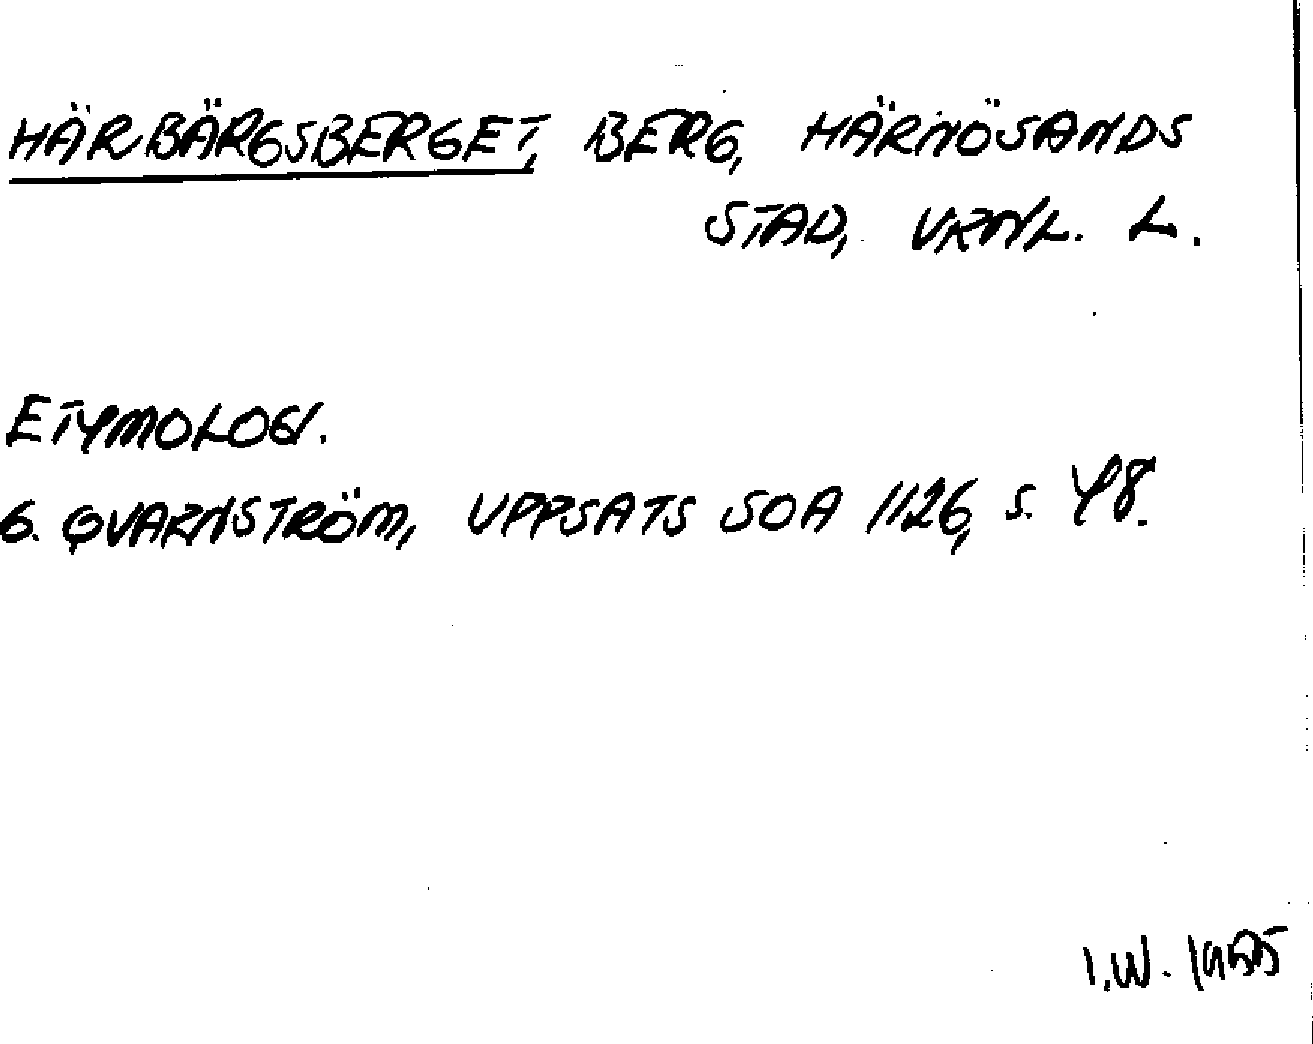 HÄRBÄRGSBERGET, BERG, HÄRNÖSANDS
STAD, VRNL. L.
ETYMOLOGI.
G. QVARNSTRÖM, UPPSATS SOA 1126, s. 48.
I.W. 1985